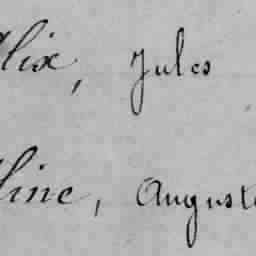 lix, Jules
line, Auguste